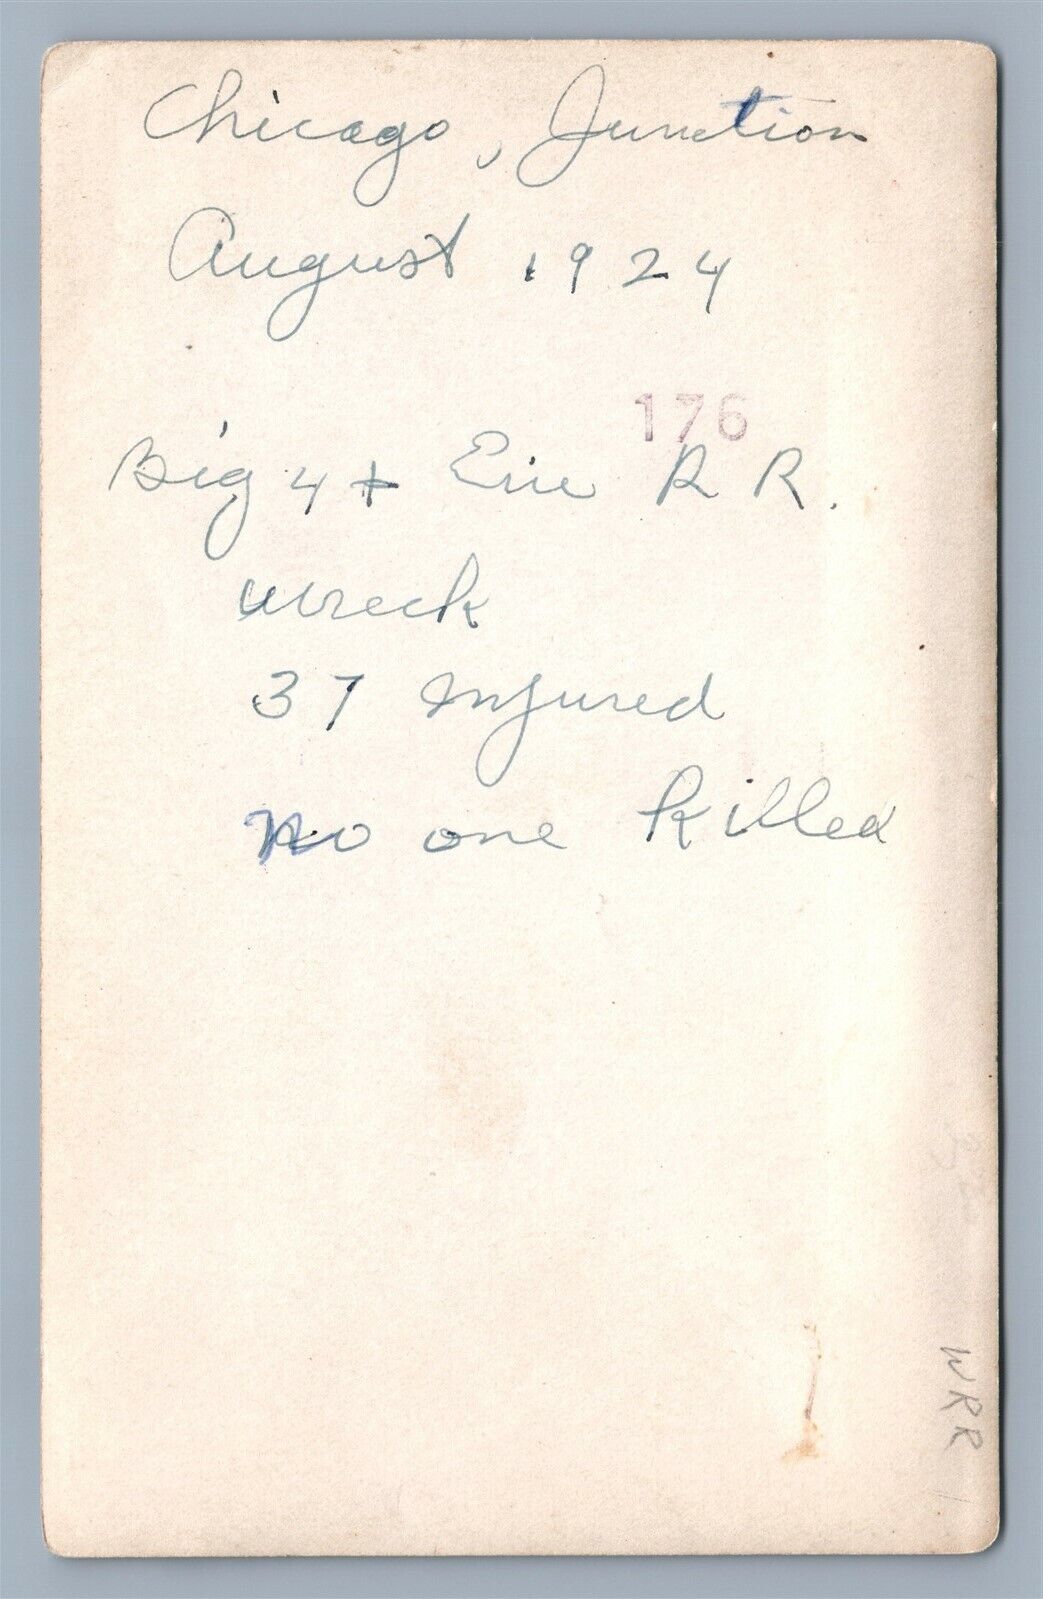 Chicago, Junction
August 1924
176
Big 4 + Erie R R.
wreck
37 Injured
No one killed
WRR